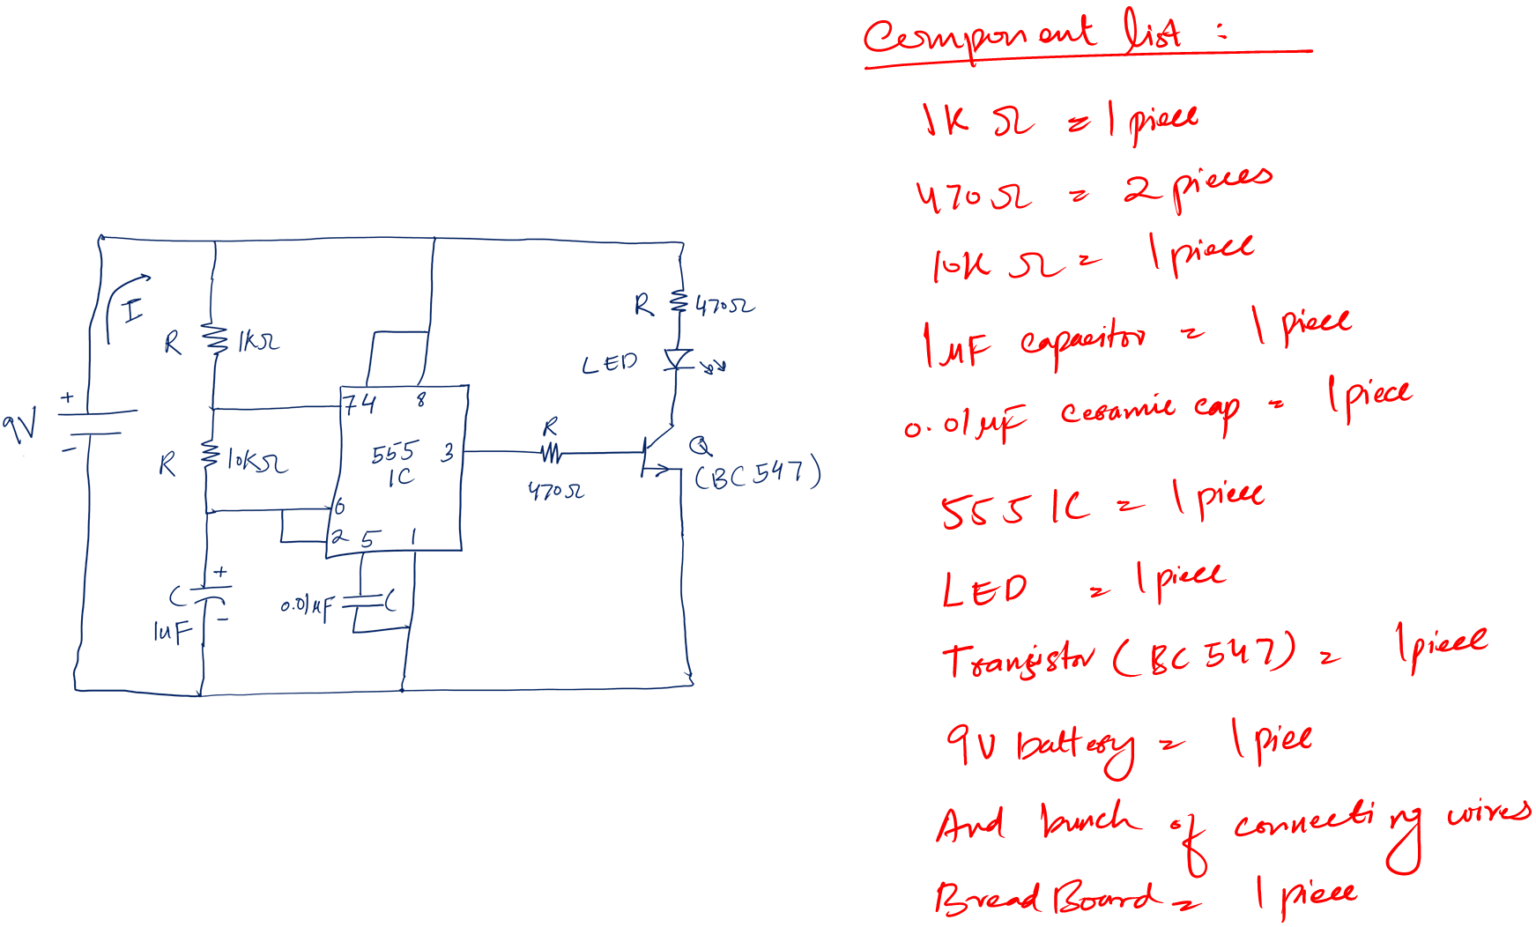 I
R
1KΩ
R
470Ω
LED
+
9V
-
7 4
8
555
IC
3
R
470Ω
Q
(BC547)
R
10KΩ
6
2
5
1
+
C
1uF
-
0.01μF
C
Component list :
1K Ω = 1 piece
470Ω = 2 pieces
10K Ω = 1 piece
1μF capacitor = 1 piece
0.01μF ceramic cap = 1 piece
555 IC = 1 piece
LED = 1 piece
Transistor (BC547) = 1 piece
9V battery = 1 piece
And bunch of connecting wires
Bread Board = 1 piece